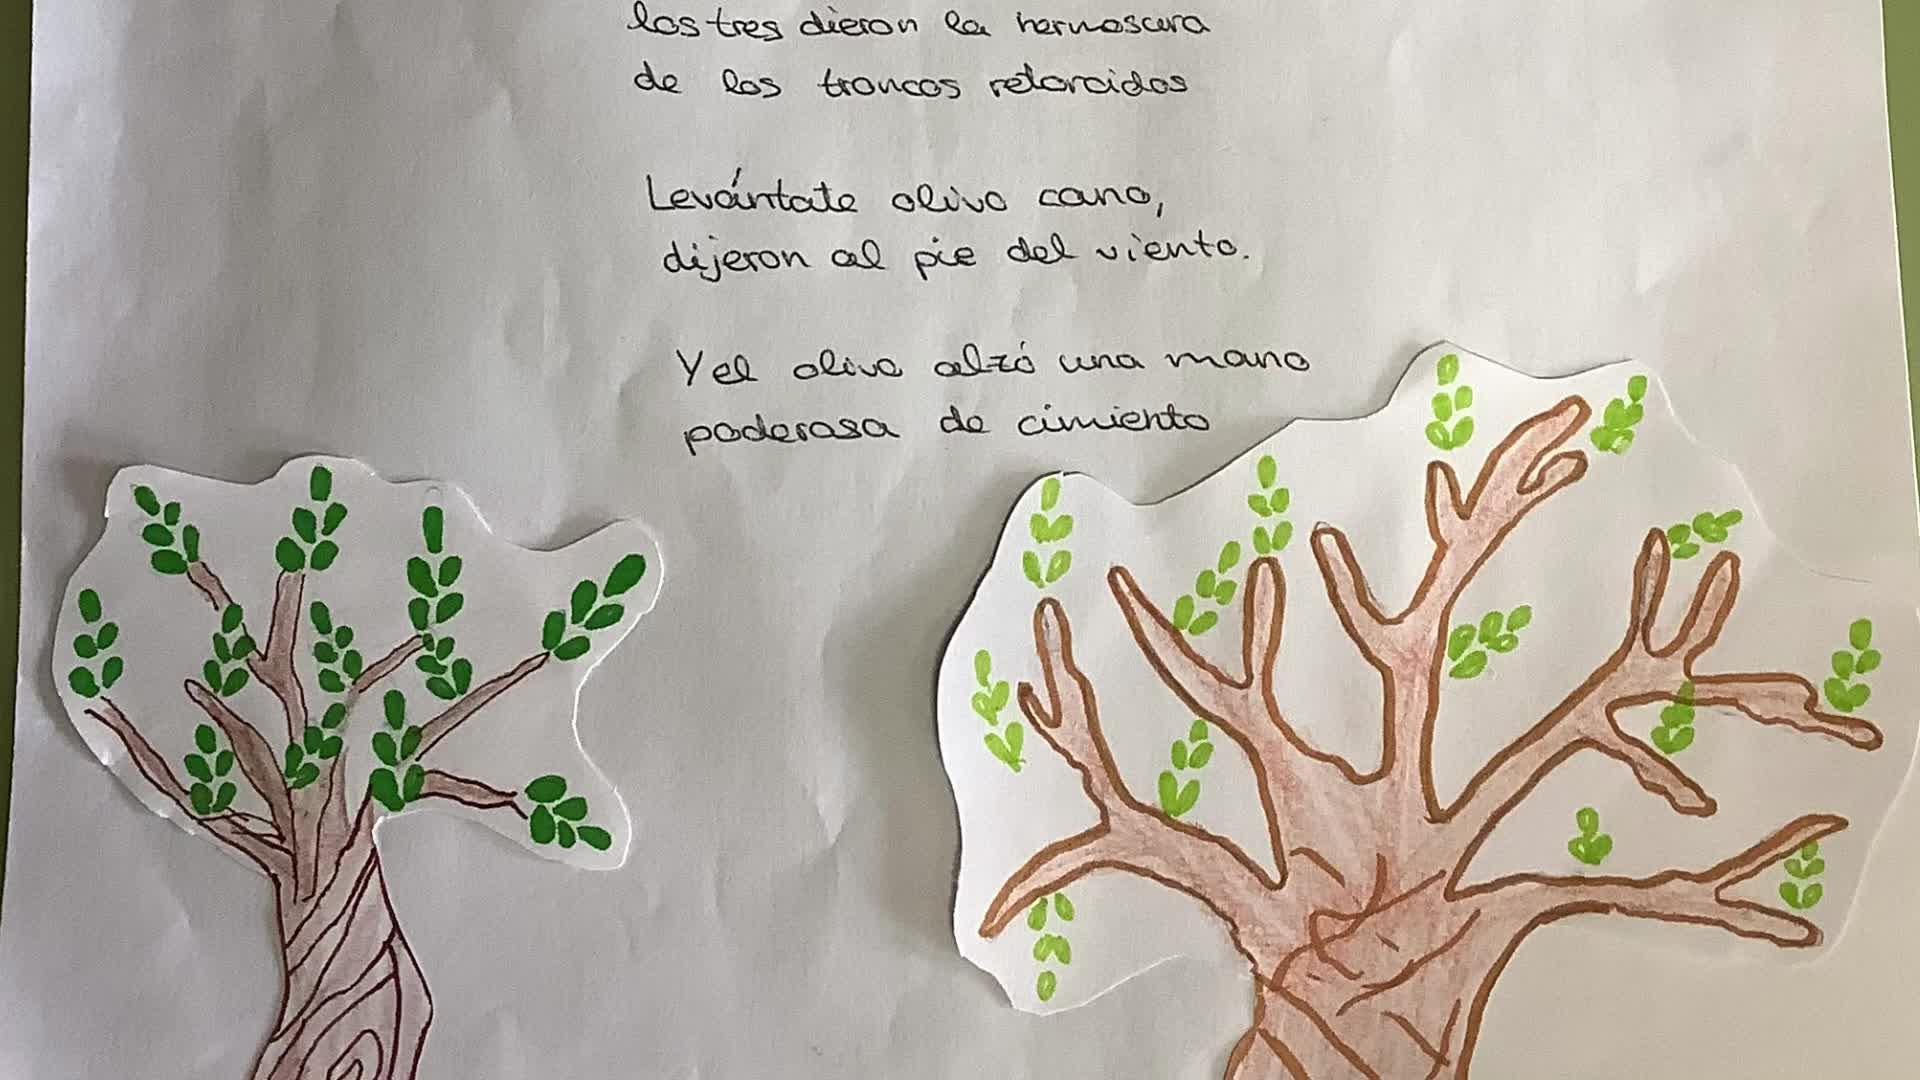 los tres dieron la hermosura
de los troncos retorcidos
Levántate olivo cano,
dijeron al pie del viento.
Y el olivo alzó una mano
poderosa de cimiento